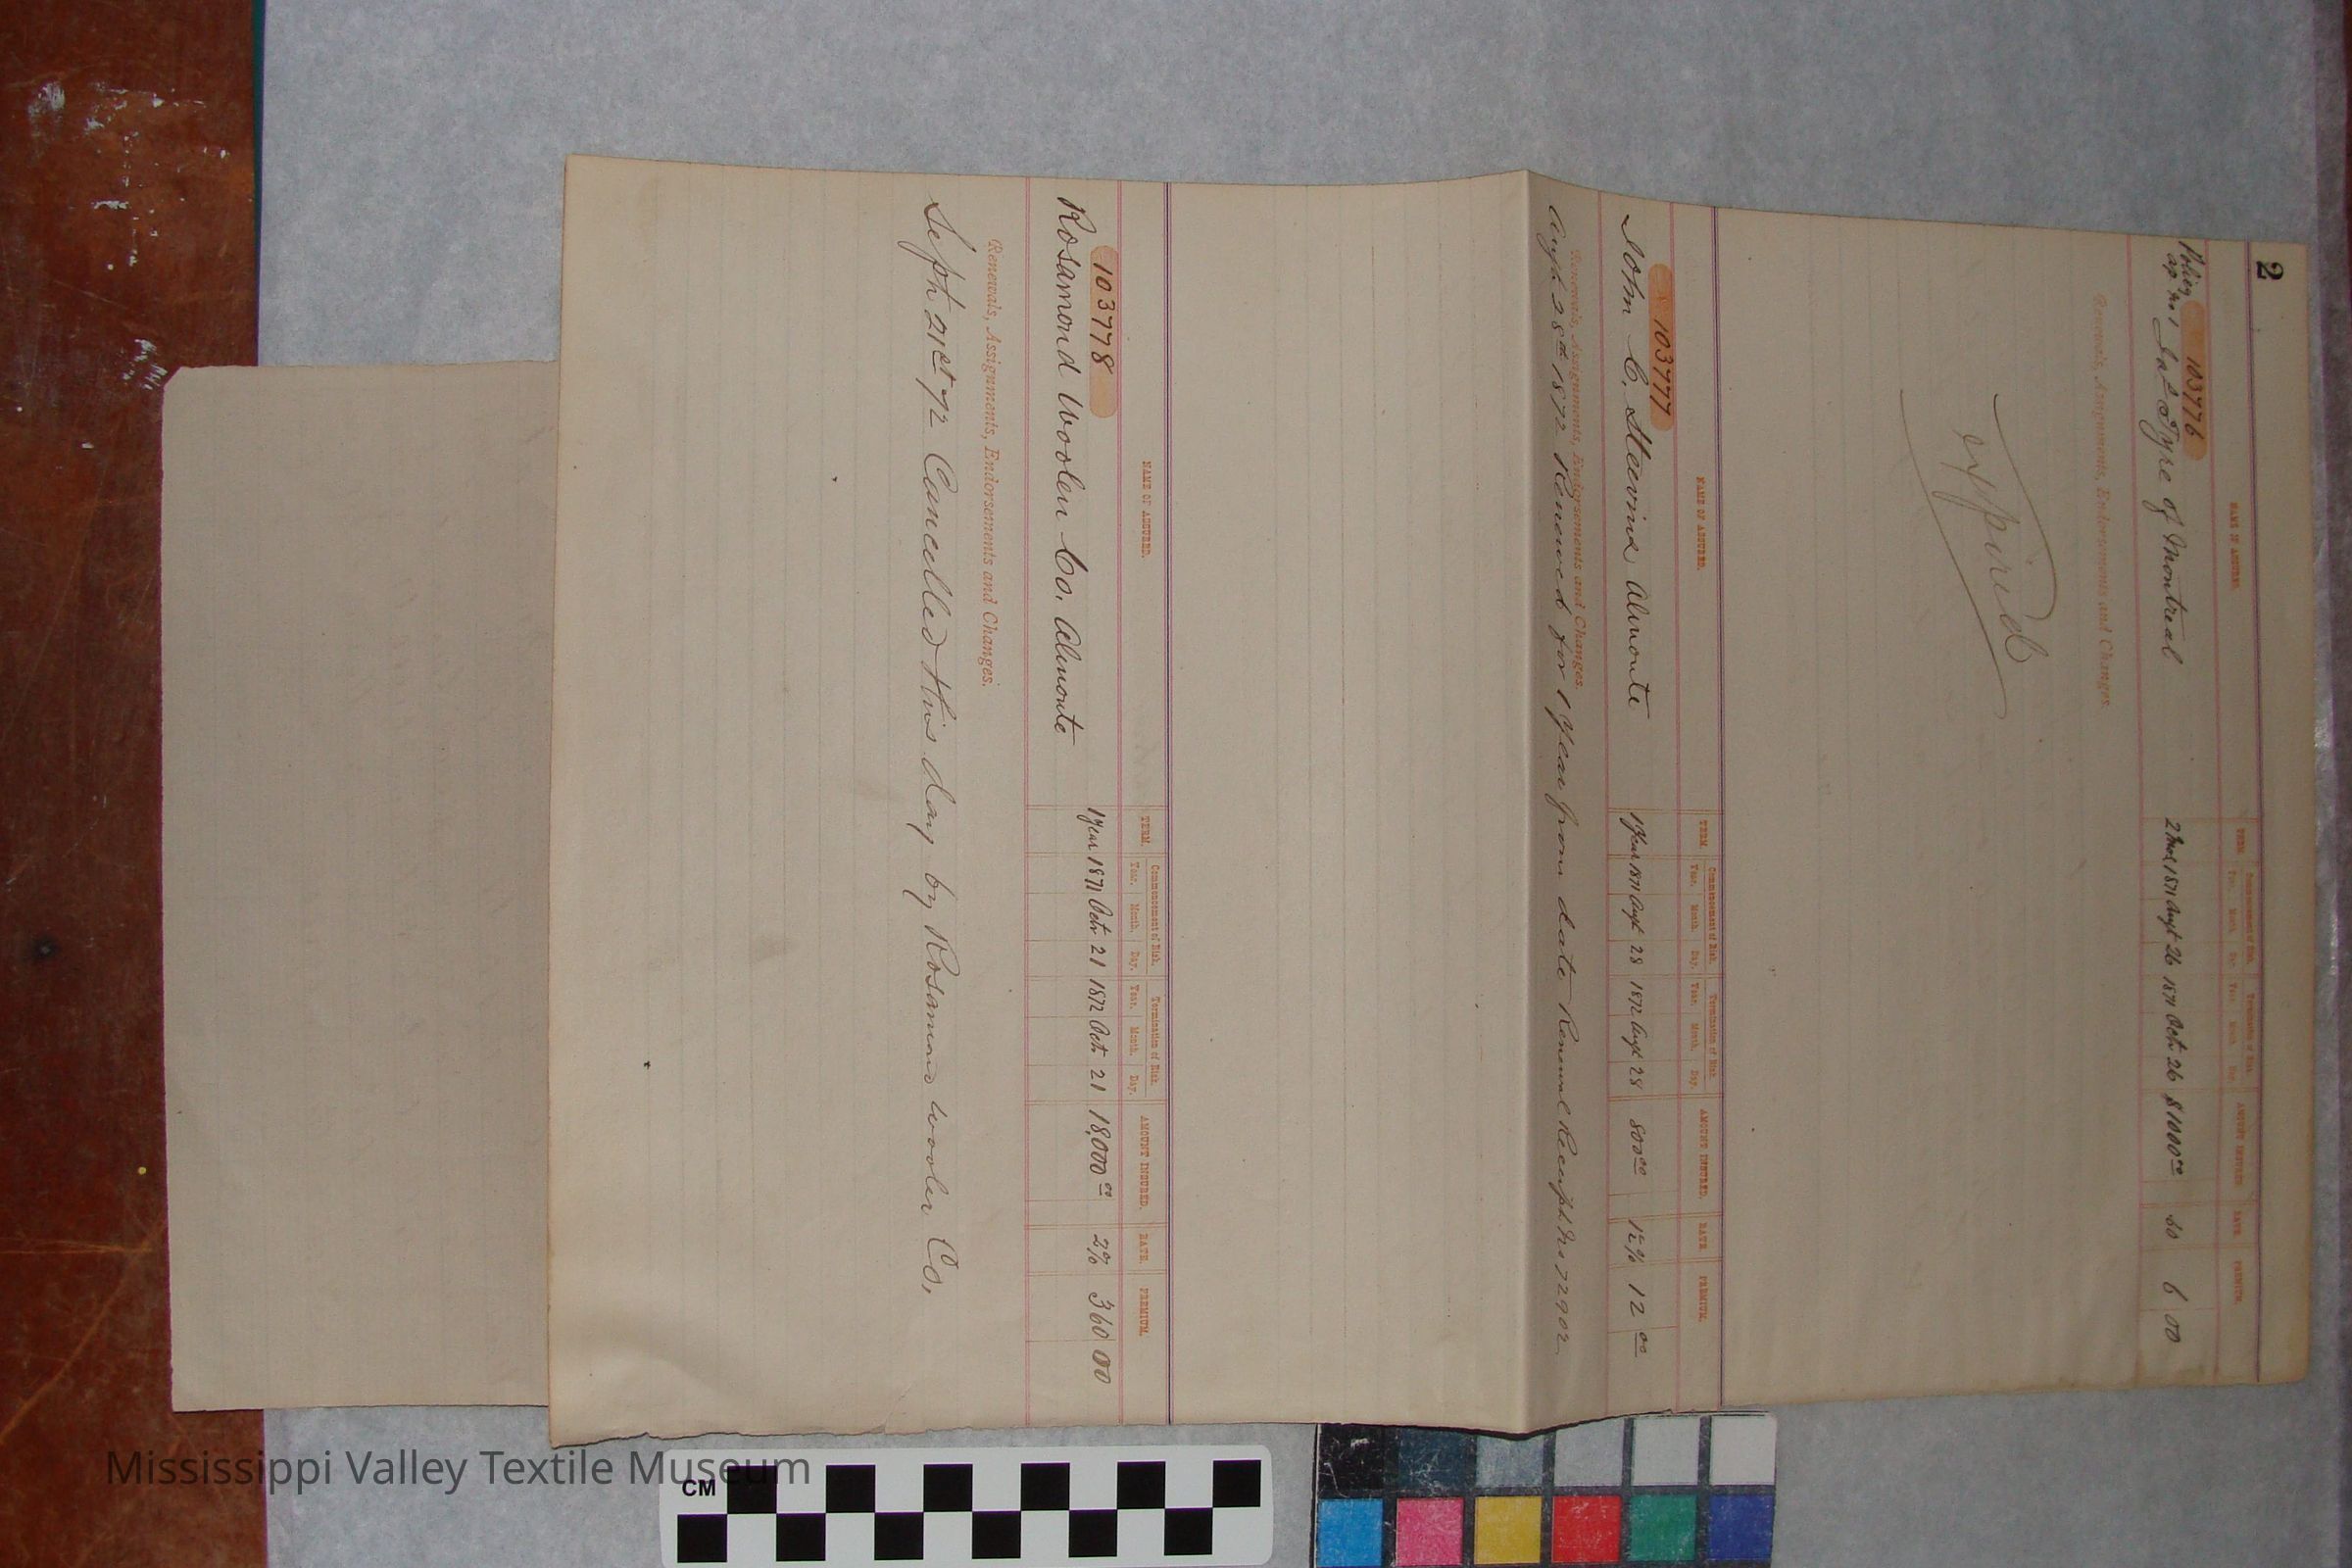 2
NAME OF ASSURED. TERM. Commencement of Risk. Termination of Risk. AMOUNT INSURED. RATE. PREMIUM.
Year. Month. Day. Year. Month. Day.
Policy 103776
Jas Tyre of Montreal 2 Mos 1871 Augt 26 1871 Octr 26 $1000.00 60 6 00
Renewals, Assignments, Endorsements and Changes.
Expired
NAME OF ASSURED. TERM. Commencement of Risk. Termination of Risk. AMOUNT INSURED. RATE. PREMIUM.
Year. Month. Day. Year. Month. Day.
103777
John C. Steevins Almonte 1 Year 1871 Augt 28 1872 Augt 28 800 00 12 00
Renewals, Assignments, Endorsements and Changes.
Augt 28th 1872 Renewed for 1 Year from date Renewal Receipt No 72902
NAME OF ASSURED. TERM. Commencement of Risk. Termination of Risk. AMOUNT INSURED. RATE. PREMIUM.
Year. Month. Day. Year. Month. Day.
103778
Rosamond Woolen Co. Almonte 1 Year 1871 Octr 21 1872 Octr 21 18,000 00 2% 360 00
Renewals, Assignments, Endorsements and Changes.
Sept 21st 72 Cancelled this day by Rosamond Woolen Co,
Mississippi Valley Textile Museum
CM